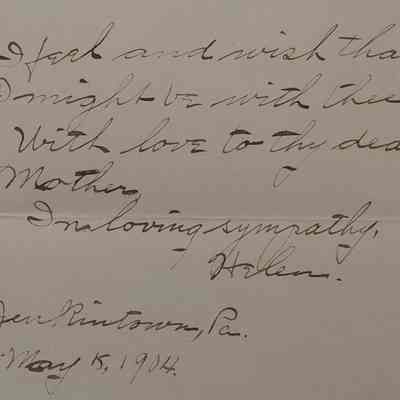 I feel and wish tha
I might be with thee
With love to thy dea
Mother
In loving sympathy,
Helen.
Jenkintown, Pa.
May 15, 1904.